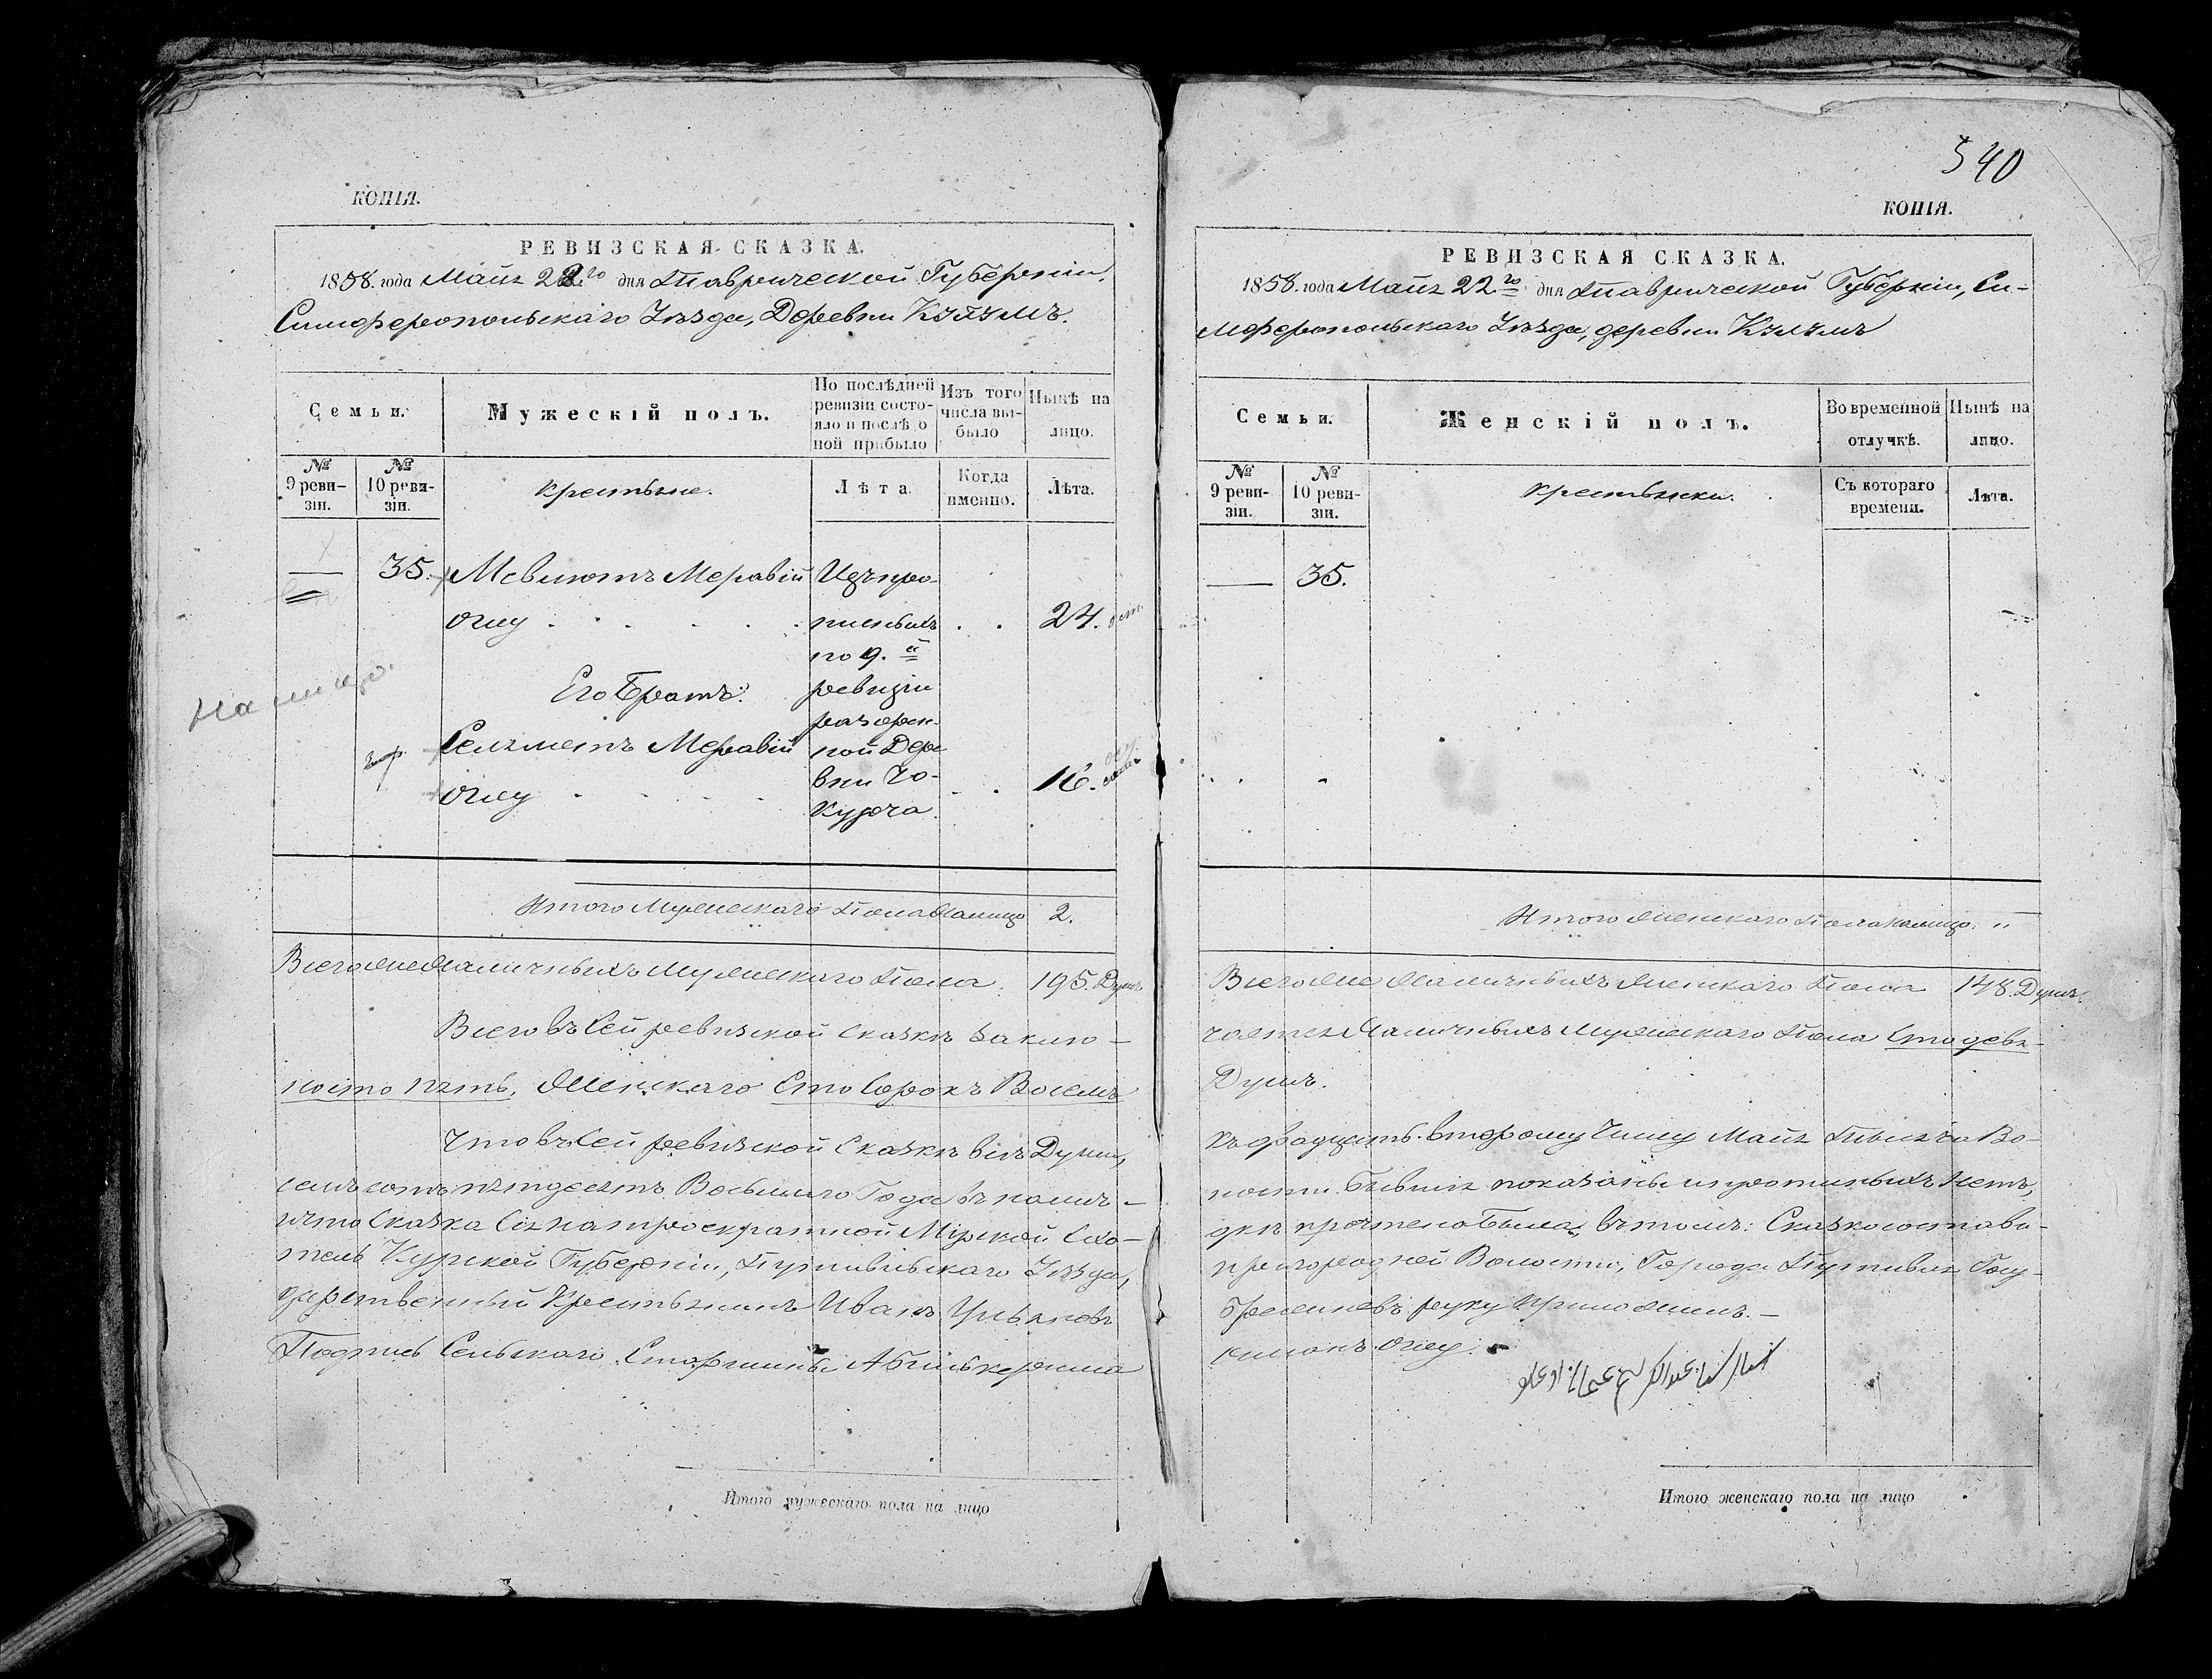 КОПІЯ.
РЕВИЗСКАЯ СКАЗКА.
1858. года Маія 22.го дня Таврической Губерніи,
Симферопольскаго Уѣзда, Деревни
Семьи.
Мужескій полъ.
По послѣдней ревизіи состояло и послѣ оной прибыло
Изъ того числа выбыло
Нынѣ на лицо.
№ 9 ревизіи.
№ 10 ревизіи.
Крестьяне.
Лѣта.
Когда именно.
Лѣта.
35. Мевлютъ Меравій
оглу . . . . . . 24.
Его Братъ:
Сельметъ Меравій
оглу . . . . 16.
Изъ про-
писныхъ
по 9.й
ревизіи
разорен-
ной Дере
вни Чо-
курча.
На лицо.
Итого Мужескаго Пола Налицо 2.
Всего же Наличныхъ Мужескаго Пола. 195. Душъ
Всего въ Сей ревизской Сказкѣ Заклю-
носто пять, Женскаго Сто Сорокъ Восемь
Что въ Сей ревизской Сказкѣ всѣ Души,
семъ сотъ пятдесятъ Восьмаго Года въ налич-
и что Сказка Сія на троекратной Мірской Схо-
тель Курской Губерніи, Путивльскаго Уѣзда,
ударственный Крестьянинъ Иванъ Ульяновъ
Подпись Сельскаго Старшины Абильқерима
Итого мужескаго пола на лицо
540
КОПІЯ.
РЕВИЗСКАЯ СКАЗКА.
1858. года Маія 22.го дня Таврической Губерніи, Си-
мферопольскаго Уѣзда, деревни
Семьи.
Женскій полъ.
Во временной отлучкѣ.
Нынѣ на лицо.
№ 9 ревизіи.
№ 10 ревизіи.
Крестьянки.
Съ котораго времени.
Лѣта.
35.
Итого Женскаго Пола Налицо. "
Всего же Наличныхъ Женскаго Пола 148. Душъ.
чается Наличныхъ Мужескаго Пола Сто девя-
Душъ.
къ двадцать второму Числу Маія Тысяча Во-
ности бывшія показаны и пропиныхъ Нетъ,
дкѣ прочтена Была, въ томъ: Сказкосостави-
пригородней Волости, Города Путивля Госу-
руку Приложилъ. —
оглу.
Итого женскаго пола на лицо